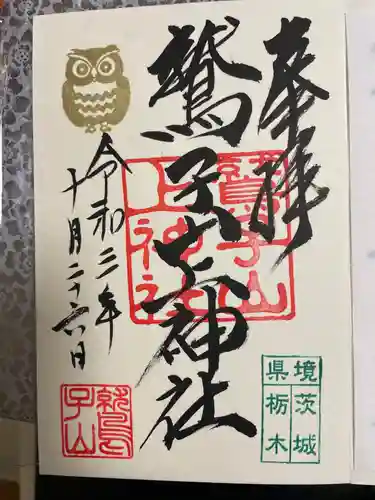 奉拝
鷲子山上神社
令和二年
十月二十六日
鷲子山
上神社
鷲
子山
境茨城
県栃木